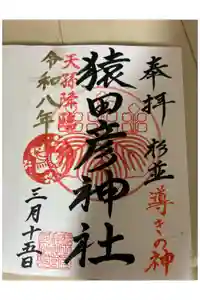 奉拝 杉並
導きの神
猿田彦神社
天孫降臨
令和八年
三月十五日